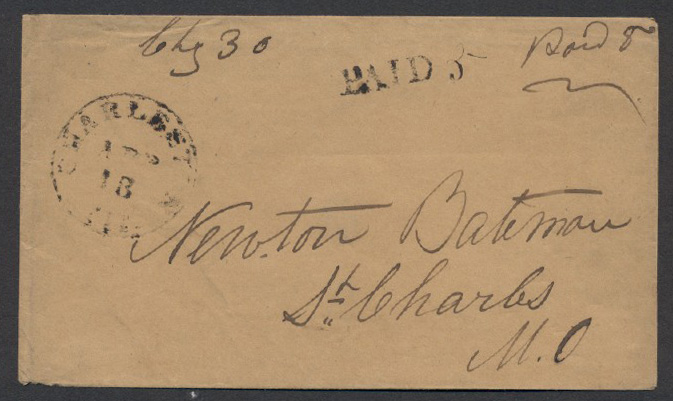 Chg 30
PAID 5
Paid 5
CHARLESTON
APR
18
Newton Bateman
St. Charles
M.O